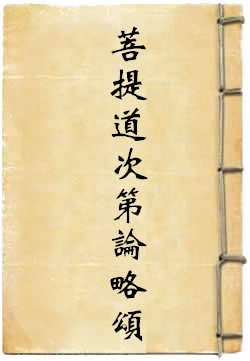 菩提道次第論略頌